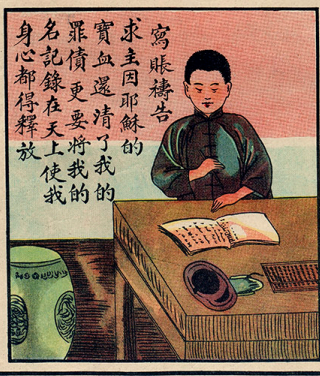 寫賬禱告
求主因耶穌的
寶血還清了我的
罪債更要將我的
名記錄在天上使我
身心都得釋放